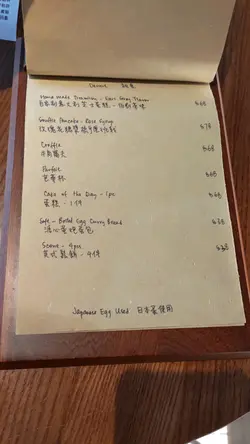 Dessert 甜品
Home made Tiramisu - Earl Grey Flavor $68
自家制意大利芝士蛋糕 - 伯爵茶味
Souffle Pancake - Rose Syrup $78
玫瑰花糖漿梳乎厘班戟
Croffle $68
牛角窩夫
Parfait $68
芭菲杯
Cake of the Day - 1pc $48
蛋糕 - 1件
Soft - Boiled Egg Curry Bread $38
溏心蛋咖喱包
Scone - 4pcs $38
英式鬆餅 - 4件
Japanese Egg Used 日本蛋使用